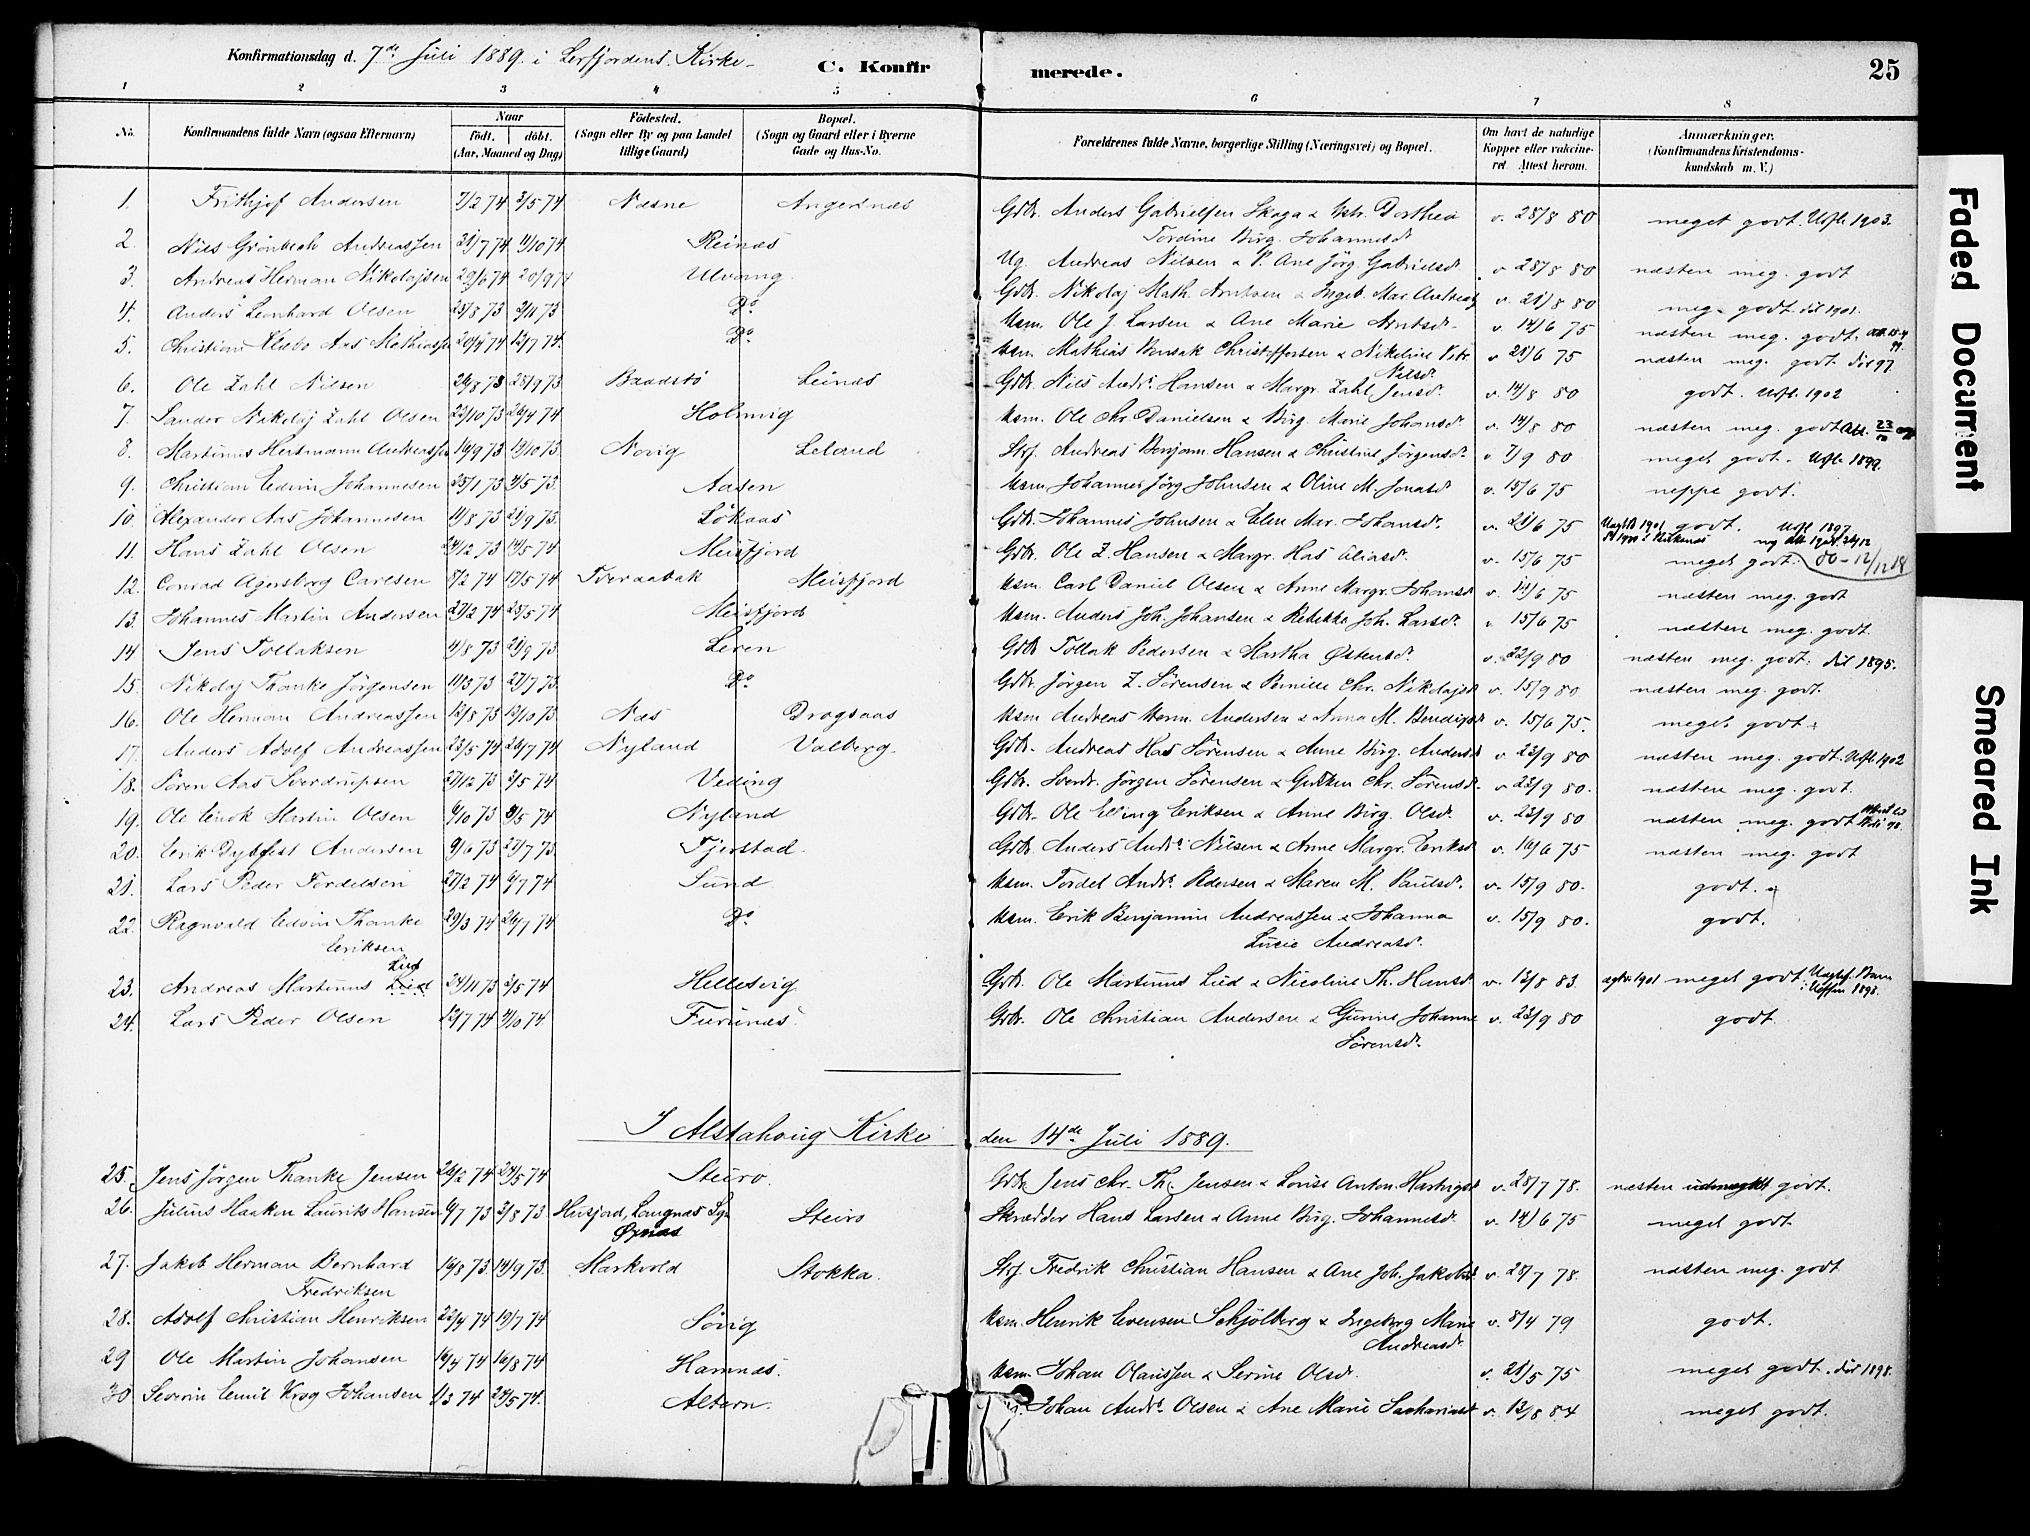 Konfirmationsdag d. 7de Juli 1889 i Lerfjordens Kirke -
C. Konfirmerede.
25
1 2 3 4 5 6 7 8
No. Konfirmandens fulde Navn (ogsaa Efternavn) Naar födt. döbt. (Aar, Maaned og Dag) Födested. (Sogn eller By og paa Landet tillige Gaard) Bopæl. (Sogn og Gaard eller i Byerne Gade og Hus-No. Forældrenes fulde Navne, borgerlige Stilling (Næringsvei) og Bopæl. Om havt de naturlige Kopper eller vakcineret. Attest herom. Anmærkninger. (Konfirmandens Kristendomskundskab m. V.)
1. Frithjof Andersen 7/2 74 3/5 74 Næsne Angersnæs Gdbr. Anders Gabrielsen Skaga & Dorthea v. 28/8 80 meget godt. Utfl. 1903.
Tordine Birg. Johannesdr
2. Nils Grönbech Andreassen 31/7 74 4/10 74 Reinæs Ug. Andreas Nilsen & P. Ane Jörg. Gabrielsdr v 28/8 80 næsten meg. godt
3. Andreas Herman Nikolajsen 29/6 74 20/9 74 Ulvang Gdbr. Nikolaj Math. Arntsen & Ingeb. Mar. v. 21/8 80 meg. godt. död 1901.
4. Anders Leonhard Olsen 25/8 73 2/11 73 Do Hsm. Ole J. Larsen & Ane Marie Arntsdr v 14/6 75 næsten meg. godt.
5. Christian Aas 20/4 74 12/7 74. Do Hsm. Mathias Christoffersen & Nikoline v 21/6 75 næsten meg. godt död 97
Nilsdr
6. Ole Zahl Nilsen 26/8 73 28/9 73 Baadstö Leinæs Gdbr. Nils Andrs. Hansen & Margr. Zahl Jensdr v. 14/8 80 godt. Utfl. 1902
7. Sander Nikolaj Zahl Olsen 23/10 73 26/4 74 Holmvig Hsm. Ole Chr. Danielsen & Birg. Marie Johansdr v. 14/8 80 næsten meg. godt
8. Martinus Hartmann Andreassen 16/9 73 12/10 73. Novig Leland Strf. Andreas Benjam. Hansen & Christine Jörgensdr v 7/9 80 meget godt. Utfl. 1899.
9. Christian Edvin Johannesen 25/1 73 4/5 73. Aasen Hsm. Johannes Jörg. Johnsen & Oline M. Jonasdr v. 15/6 75 neppe godt.
10. Alexander Aas Johannesen 11/8 73 21/9 73. Lökaas Gdbr. Johannes Johnsen & Elen Mar. Johansdr. v. 21/6 75 godt. Utfl. 1897
11. Hans Zahl Olsen 24/12 73 14/5 74 Meisfjord Gdbr. Ole Z. Hansen & Margr. Has Eliasdr. v. 15/6 75 meget godt. 00 - 12/12 18
12. Conrad Agersborg Carlsen 8/2 74 17/5 74 Tveraabak Meisfjord Hsm. Carl Daniel Olsen & Anne Margr. Johansdr v. 14/6 75 næsten meg. godt
13. Johannes Martin Andersen 27/2 74 25/5 74 Meisfjord Hsm. Anders Joh. Johansen & Rebekka Joh. Larsdr v. 15/6 75 næsten meg. godt.
14 Jens Tollaksen 4/8 73 21/9 73 Leren Gdbr Tollak Pedersen & Martha Østensdr. v. 22/9 80 næsten meg. godt. död 1895.
15. Nikolaj Thanke Jörgensen 11/3 73 27/7 73. Do Gdbr. Jörgen Z. Sörensen & Pernille Chr. Nikolajsdr v. 15/9 80 næsten meg. godt.
16. Ole Herman Andreassen 12/8 73 12/10 73 Næs Dragsaas Hsm Andreas Herm. Andersen & Anna M. v. 15/6 75. meget godt.
17. Anders Adolf Andreassen 23/5 74 26/7 74 Nyland Valberg. Gdbr. Andreas Has Sörensen & Anne Birg. Andersdr v. 23/9 80 næsten meg. godt. Utfl. 1902
18. Sören Aas Sverdrupsen 27/12 73 3/5 74 Veding Gdbr. Sverdr. Jörgen Sörensen & Chr. Sörensdr. v 23/9 80. næsten meg. godt.
19. Ole Enok Martin Olsen 6/10 73 3/5 74 Nyland Gdbr. Ole Elling Eriksen & Anne Birg. Olsdr. v. 23/9 80 næsten meg. godt
20. Erik Andersen 9/6 73 27/7 73. Fjerstad. Gdbr. Anders Andrs. Nilsen & Anne Margr. Eriksdr v. 16/6 75 næsten meg. godt
21. Lars Peder Tordelsen 27/2 74 6/7 74 Sund Hsm. Tordel Andrs. Pedersen & Maren M. Paulsdr. v. 15/9 80. godt.
22. Ragnvald Edvin Thanke 29/3 74 26/7 74 Do Hsm. Erik Benjamin Andreassen & Johanna v. 15/9 80. godt.
Eriksen Lucie Andreasdr.
Lied
23. Andreas Martinus Lied 24/11 73 3/5 74 Hellesvig Gdbr. Ole Martinus Lied & Nicoline Th. Hansdr v. 13/8 83. 1901 meget godt
24. Lars Peder Olsen 12/7 74 4/10 74. Furunæs Gdbr. Ole Christian Andersen & Gurine Johanne v. 23/9 80 godt.
Sörensdr.
I Alstahoug Kirke den 14de Juli 1889.
25. Jens Jörgen Thanke Jensen 26/2 74 24/5 74 Steiro. Gdbr Jens Chr. Th. Jensen & Lovise Anton. Hartvigsdr v. 28/7 78. næsten godt.
26. Julius Haaken Laurits Hansen 6/7 73 3/8 73 Husjord, Langnæs Sgn Steiro Skrædder Hans Larsen & Anne Birg. Johannesdr. v. 14/6 75 meget godt
Øxnæs
27. Jakob Herman Bernhard 16/8 73. 14/9 73. Markvold Stokka. Strf. Fredrik Christian Hansen & Ane Joh. Jakobsdr. v. 28/7 78. næsten meg. godt
Fredriksen
28. Adolf Christian Henriksen 22/4 74 19/7 74 Sövig Hsm. Henrik Evensen Schjölberg & Ingeborg Marie v. 8/4 79 godt.
Andreasdr.
29 Ole Martin Johansen 16/4 74 16/8 74 Hamnæs. Hsm. Johan Olaussen & Serine Olsdr. v. 21/5 75 meget godt. död 1898.
30. Severin Emil Krog Johansen 1/3 74 24/5 74. Altern. Johan Andrs. Olsen & Ane Marie Sakariasdr v. 13/8 84 meget godt.
Faded Document
Smeared Ink